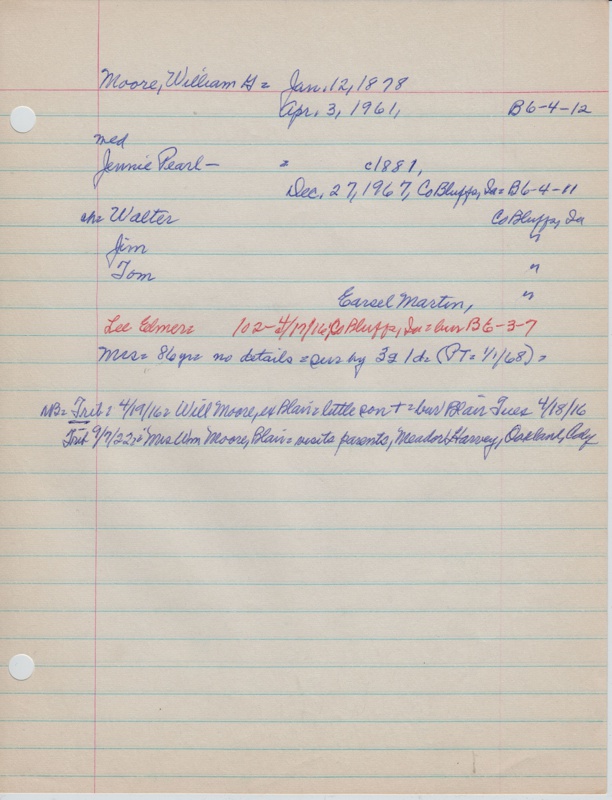 Moore, William H = Jan. 12, 1878
Apr. 3, 1961, B6-4-12
med
Jennie Pearl — = c1881,
Dec. 27, 1967, Co Bluffs, Ia = B6-4-11
ch = Walter Co Bluffs, Ia
Jim "
Tom "
Earsel Martin, "
Lee Elmer = 102 - 4/17/16, Co Bluffs, Ia = bur B6-3-7
Mrs = 86 yrs = no details = sur by 3s 1d = (PT = 1/1/68) =
NB = Trib = 4/19/16 = Will Moore, ex Blair = little son + = bur Blair Tues 4/18/16
Trib 9/7/22 = Mrs Wm Moore, Blair = visits parents, Harvey, Oakland,